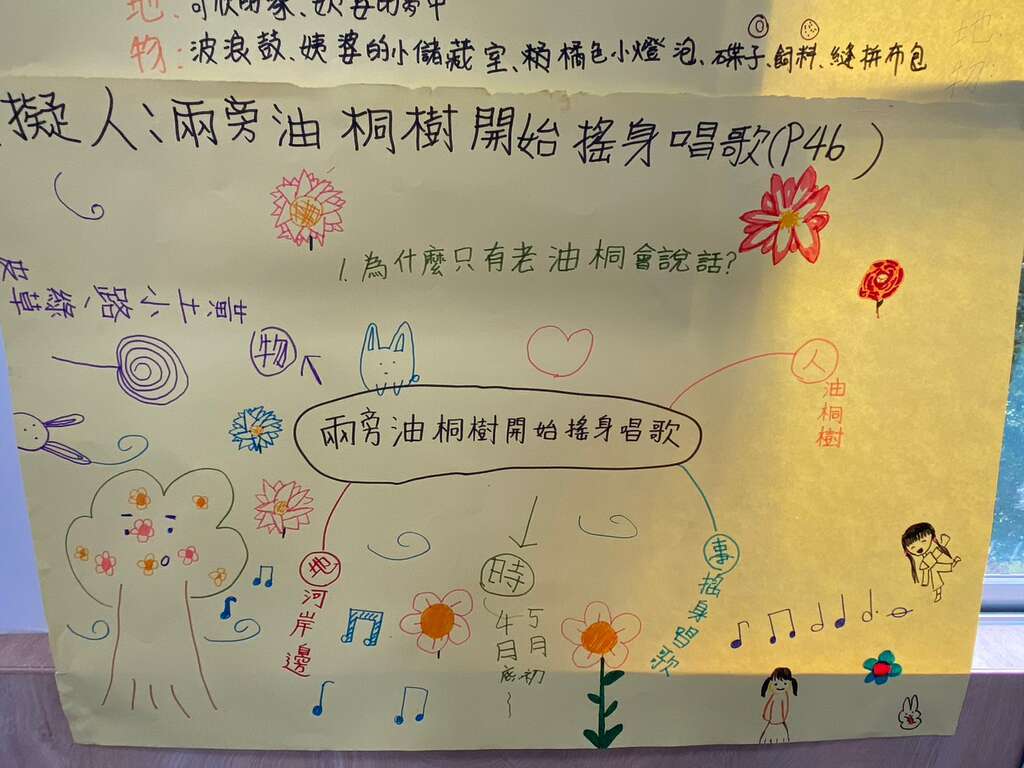 地:可欣的家、姨婆的家中
物:波浪鼓、姨婆的小儲藏室、橘色小燈泡、碟子、飼料、縫拼布包
擬人:兩旁油桐樹開始搖身唱歌(P46)
1.為什麼只有老油桐會說話?
黃土小路、綠草
物
兩旁油桐樹開始搖身唱歌
人
油桐樹
地
河岸邊
時
4月底~
5月初
事
搖身唱歌